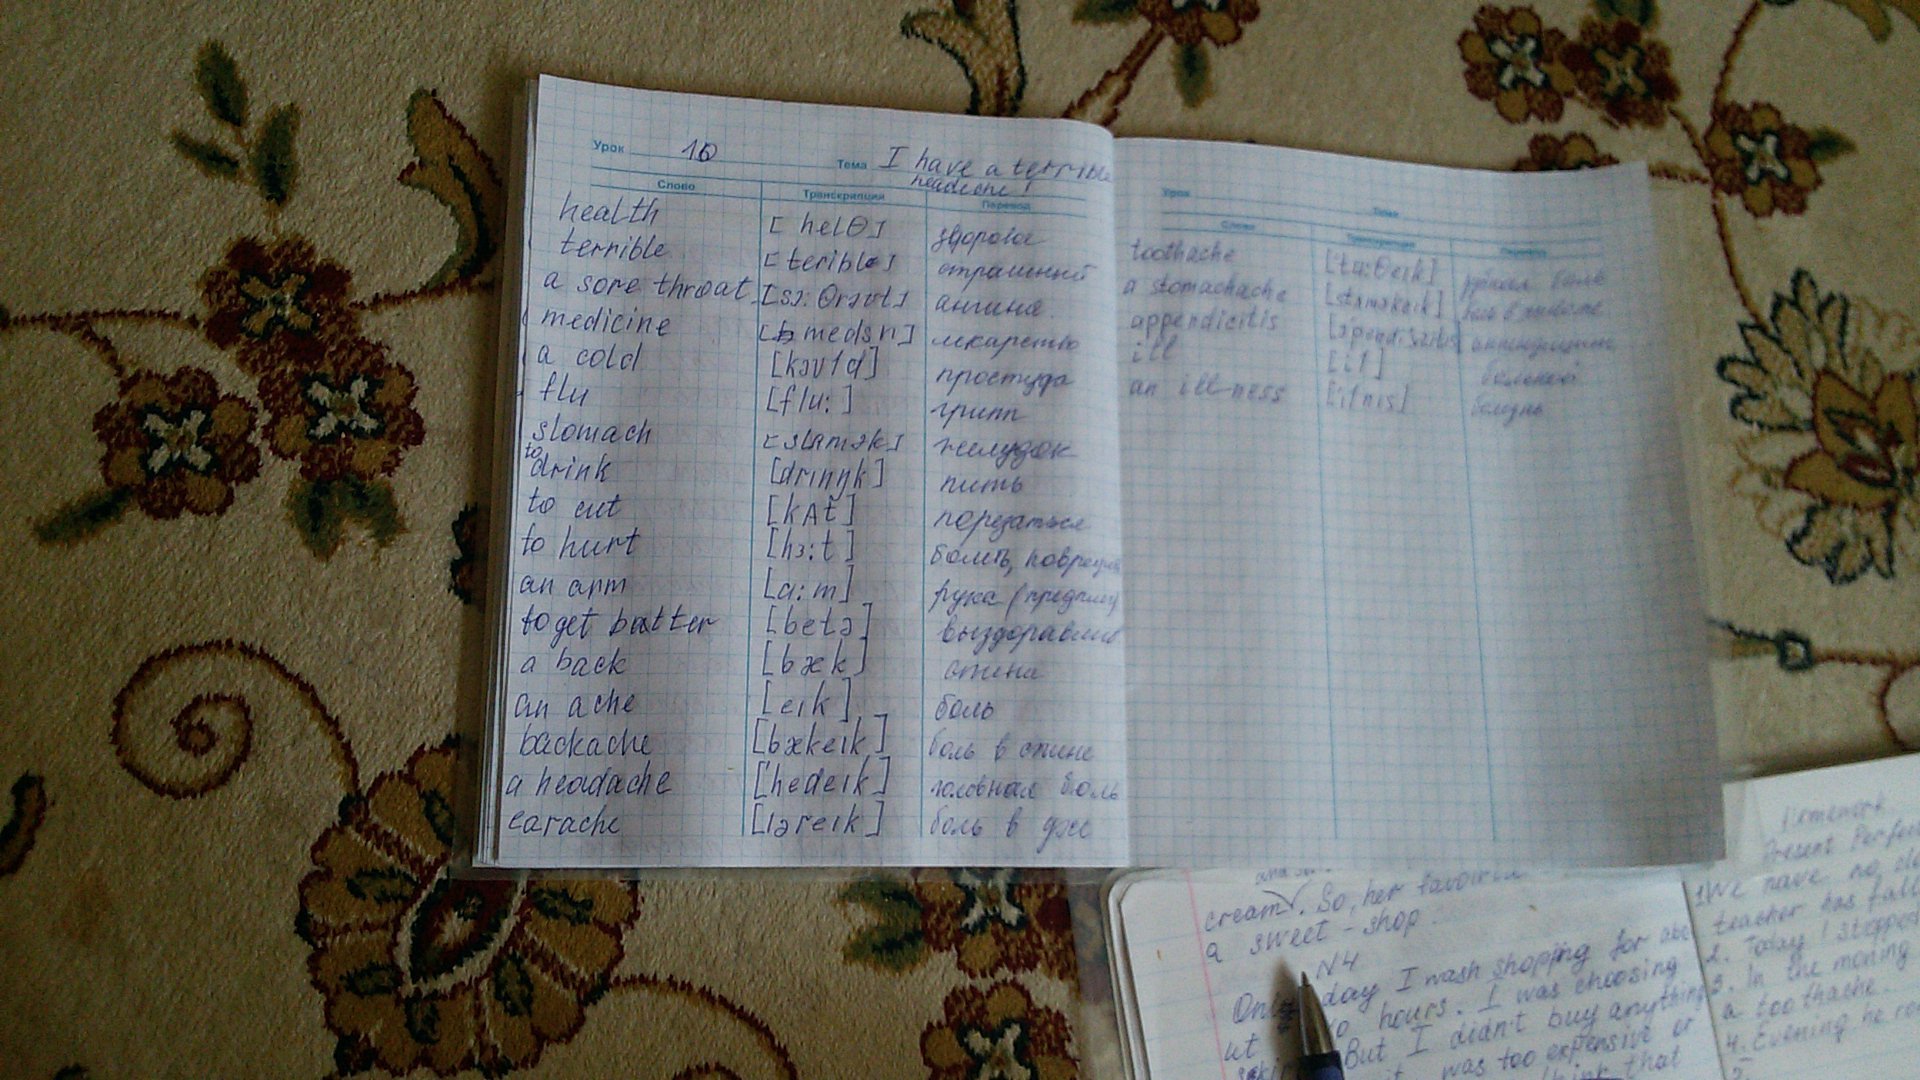 Урок 10 Тема I have a terrible
headache!
Слово Транскрипция Перевод
health [helθ] здоровье
terrible [terible] страшный
a sore throat [sɔ: θrəʊt] ангина
medicine [medsn] лекарство
a cold [kəʊld] простуда
flu [flu:] грипп
stomach [stʌmək] желудок
to drink [drıŋk] пить
to cut [kʌt] порезаться
to hurt [hɜ:t] болеть,
an arm [a:m] рука
to get better [betə]
a back [bæk] спина
an ache [eık] боль
backache [bækeık] боль в спине
a headache ['hedeık] головная боль
earache [ıəreık] боль в
Урок Тема
Слово Транскрипция Перевод
toothache [tu:θeık] боль
a stomachache [stʌməkeık] боль в животе
appendicitis аппендицит
ill [il] больной
an ill-ness [ilnis] болезнь
cream. So, her favourite
a sweet-shop.
N4
day I wash shopping for
hours. I was choosing
But I didn't buy anything
was too expensive or
think that
Homework
Present Perfect
1. We have no
teacher has
2. Today I stopped
3. In the morning
a toothache.
4. Evening he